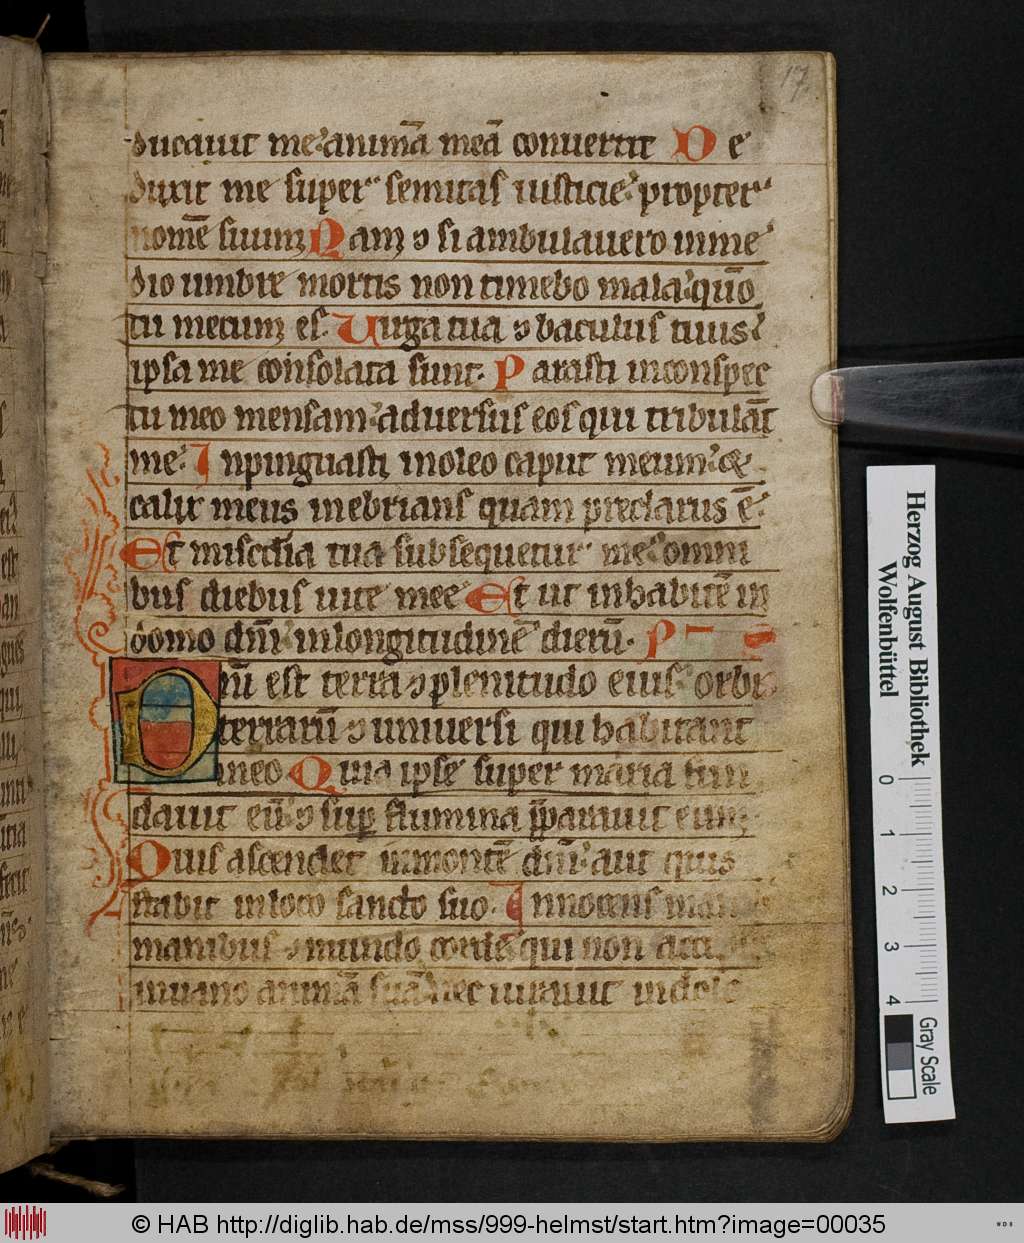 17
ducauit me animā meā conuertit De
duxit me super semitas iusticie propter
nomē suum Nam ⁊ si ambulauero in me
dio umbre mortis non timebo mala quō
tu mecum es. Uirga tua ⁊ baculus tuus
ipsa me consolata sunt. Parasti in conspec
tu meo mensam aduersus eos qui tribulāt
me. Inpinguasti in oleo caput meum ⁊
calix meus inebrians quam preclarus ē.
Et miscđia tua subsequetur me omni
bus diebus uite mee Et ut inhabitē in
domo dn̄i in longitudinē dierū. P
Dn̄i est terra ⁊ plenitudo eius orbis
terrarū ⁊ uniuersi qui habitant
in eo Quia ipse super maria fun
dauit eū ⁊ sup flumina p̄parauit eum
Quis ascendet in montē dn̄i aut quis
stabit in loco sancto suo. Innocens
manibus ⁊ mundo corde qui non
in uano animā suā nec iurauit in dolo
Herzog August Bibliothek
Wolfenbüttel
0 1 2 3 4
Gray Scale
© HAB http://diglib.hab.de/mss/999-helmst/start.htm?image=00035